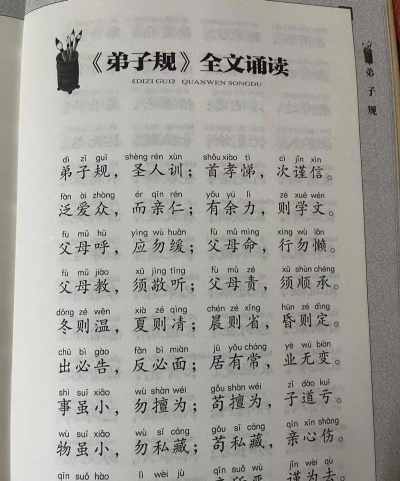 《弟子规》全文诵读
《DIZI GUI》 QUANWEN SONGDU
弟子规
dì zǐ guī shèng rén xùn shǒu xiào tì cì jǐn xìn
弟子规，圣人训；首孝悌，次谨信。
fàn ài zhòng ér qīn rén yǒu yú lì zé xué wén
泛爱众，而亲仁；有余力，则学文。
fù mǔ hū yìng wù huǎn fù mǔ mìng xíng wù lǎn
父母呼，应勿缓；父母命，行勿懒。
fù mǔ jiào xū jìng tīng fù mǔ zé xū shùn chéng
父母教，须敬听；父母责，须顺承。
dōng zé wēn xià zé qìng chén zé xǐng hūn zé dìng
冬则温，夏则凊；晨则省，昏则定。
chū bì gào fǎn bì miàn jū yǒu cháng yè wú biàn
出必告，反必面；居有常，业无变。
shì suī xiǎo wù shàn wéi gǒu shàn wéi zǐ dào kuī
事虽小，勿擅为；苟擅为，子道亏。
wù suī xiǎo wù sī cáng gǒu sī cáng qīn xīn shāng
物虽小，勿私藏；苟私藏，亲心伤。
qīn suǒ hào lì wèi jù jǐn wèi qù